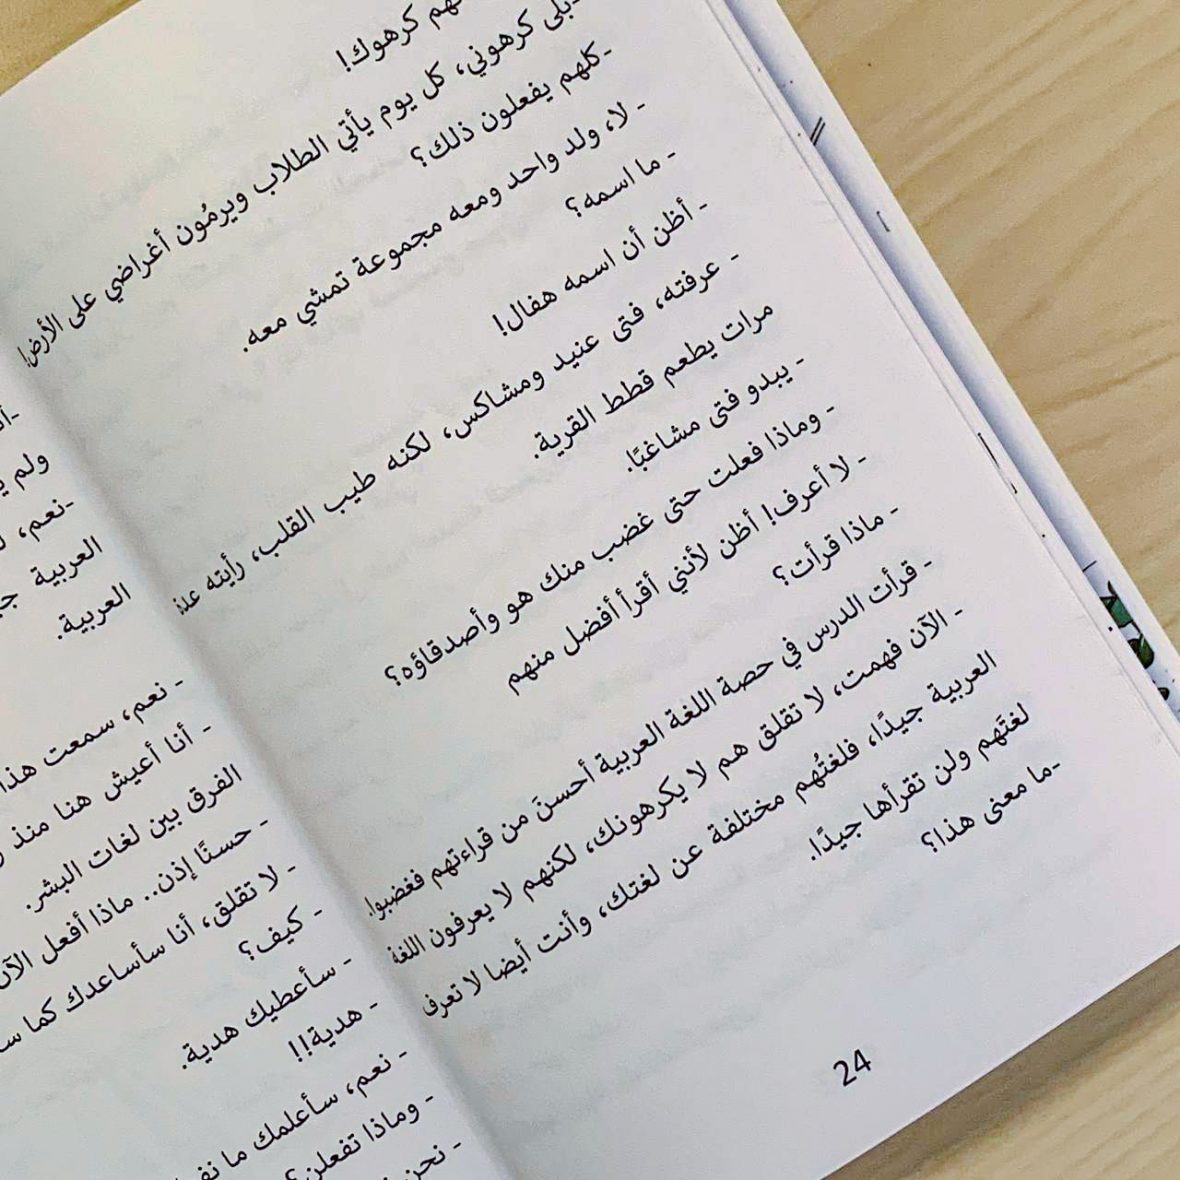 كرهوك!
بلى كرهوني، كل يوم يأتي الطلاب ويرمُون أغراضي على الأرض!
-كلهم يفعلون ذلك؟
- لا، ولد واحد ومعه مجموعة تمشي معه.
- ما اسمه؟
- أظن أن اسمه هفال!
- عرفته، فتى عنيد ومشاكس، لكنه طيب القلب، رأيته عدة
مرات يطعم قطط القرية.
- يبدو فتى مشاغبًا.
- وماذا فعلت حتى غضب منك هو وأصدقاؤه؟
- لا أعرف! أظن لأنني أقرأ أفضل منهم
- ماذا قرأت؟
- قرأت الدرس في حصة اللغة العربية أحسنَ من قراءتهم فغضبوا.
- الآن فهمت، لا تقلق هم لا يكرهونك، لكنهم لا يعرفون اللغة
العربية جيدًا، فلغتُهم مختلفة عن لغتك، وأنت أيضا لا تعرف
لغتَهم ولن تقرأها جيدًا.
-ما معنى هذا؟
24
ولم
-نعم،
العربية
العربية.
- نعم، سمعت هذا
- أنا أعيش هنا منذ
الفرق بين لغات البشر.
- حسنًا إذن.. ماذا أفعل الآن
- لا تقلق، أنا سأساعدك كما
- كيف؟
- سأعطيك هدية.
- هدية!!
- نعم، سأعلمك ما
- وماذا تفعلن؟
- نحن